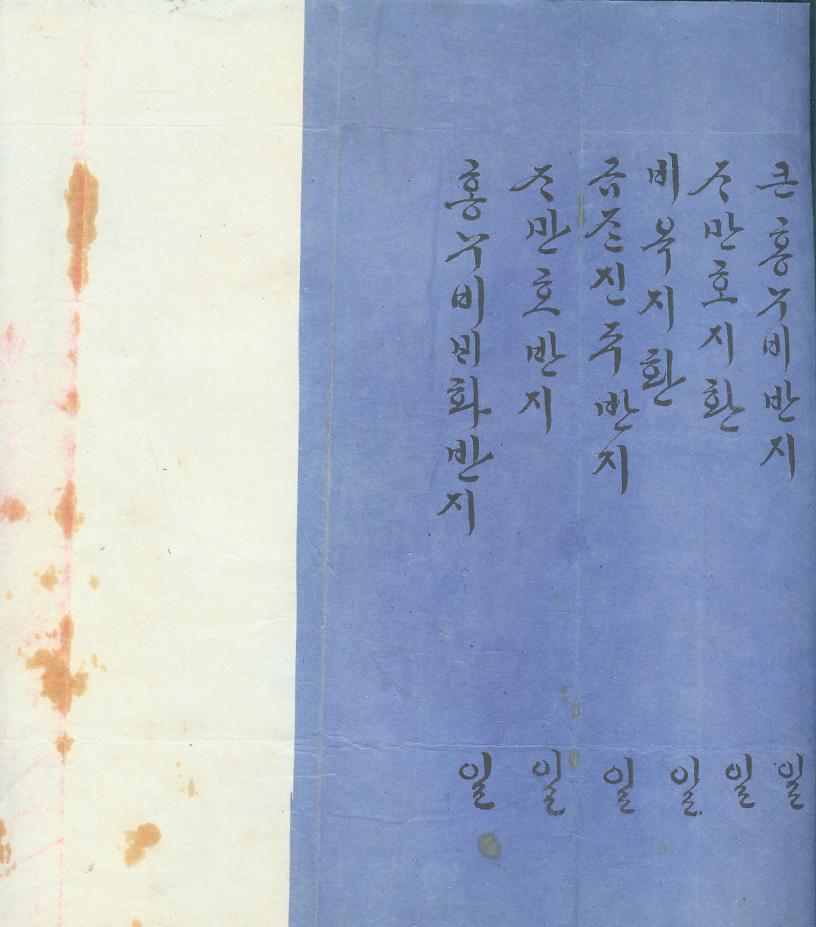 큰홍누비반지 일
ᄌᆞ만호지환 일
비옥지환 일
금즌진주반지 일
ᄌᆞ만호반지 일
홍누비ᄆᆡ화반지 일